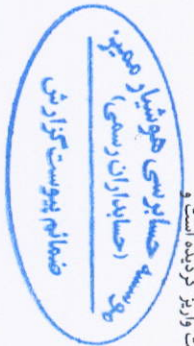 موسسه حسابرسی هوشیار ممیز
(حسابداران رسمی)
ضمائم پیوست گزارش
ت واریز گردیده است و